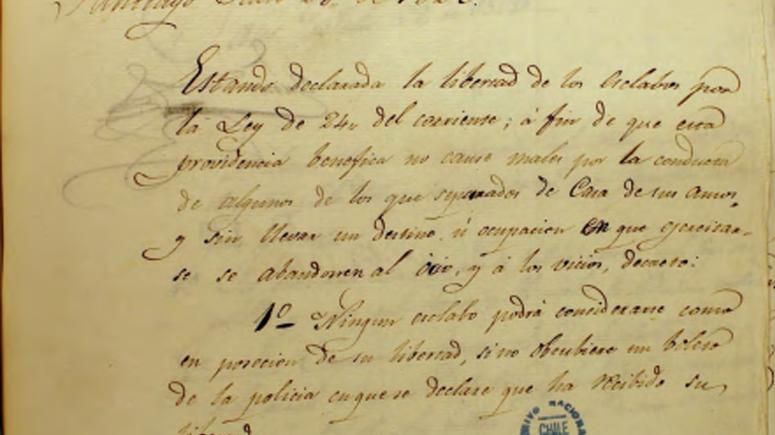 Santiago
Estando declarada la libertad de los esclabos por
la Ley de 24 del corriente; á fin de que esta
providencia benefica no cause males por la conducta
de algunos de los que separados de Casa de sus amos
y sin llevar un destino ú ocupacion en que ejercitar-
se se abandonen al ócio, y á los vicios, decreto:
1º Ningun esclabo podrá considerarse como
en posecion de su libertad, si no obtubiere un boleto
de la policia en que se declare que ha recibido su
libertad
CHILE